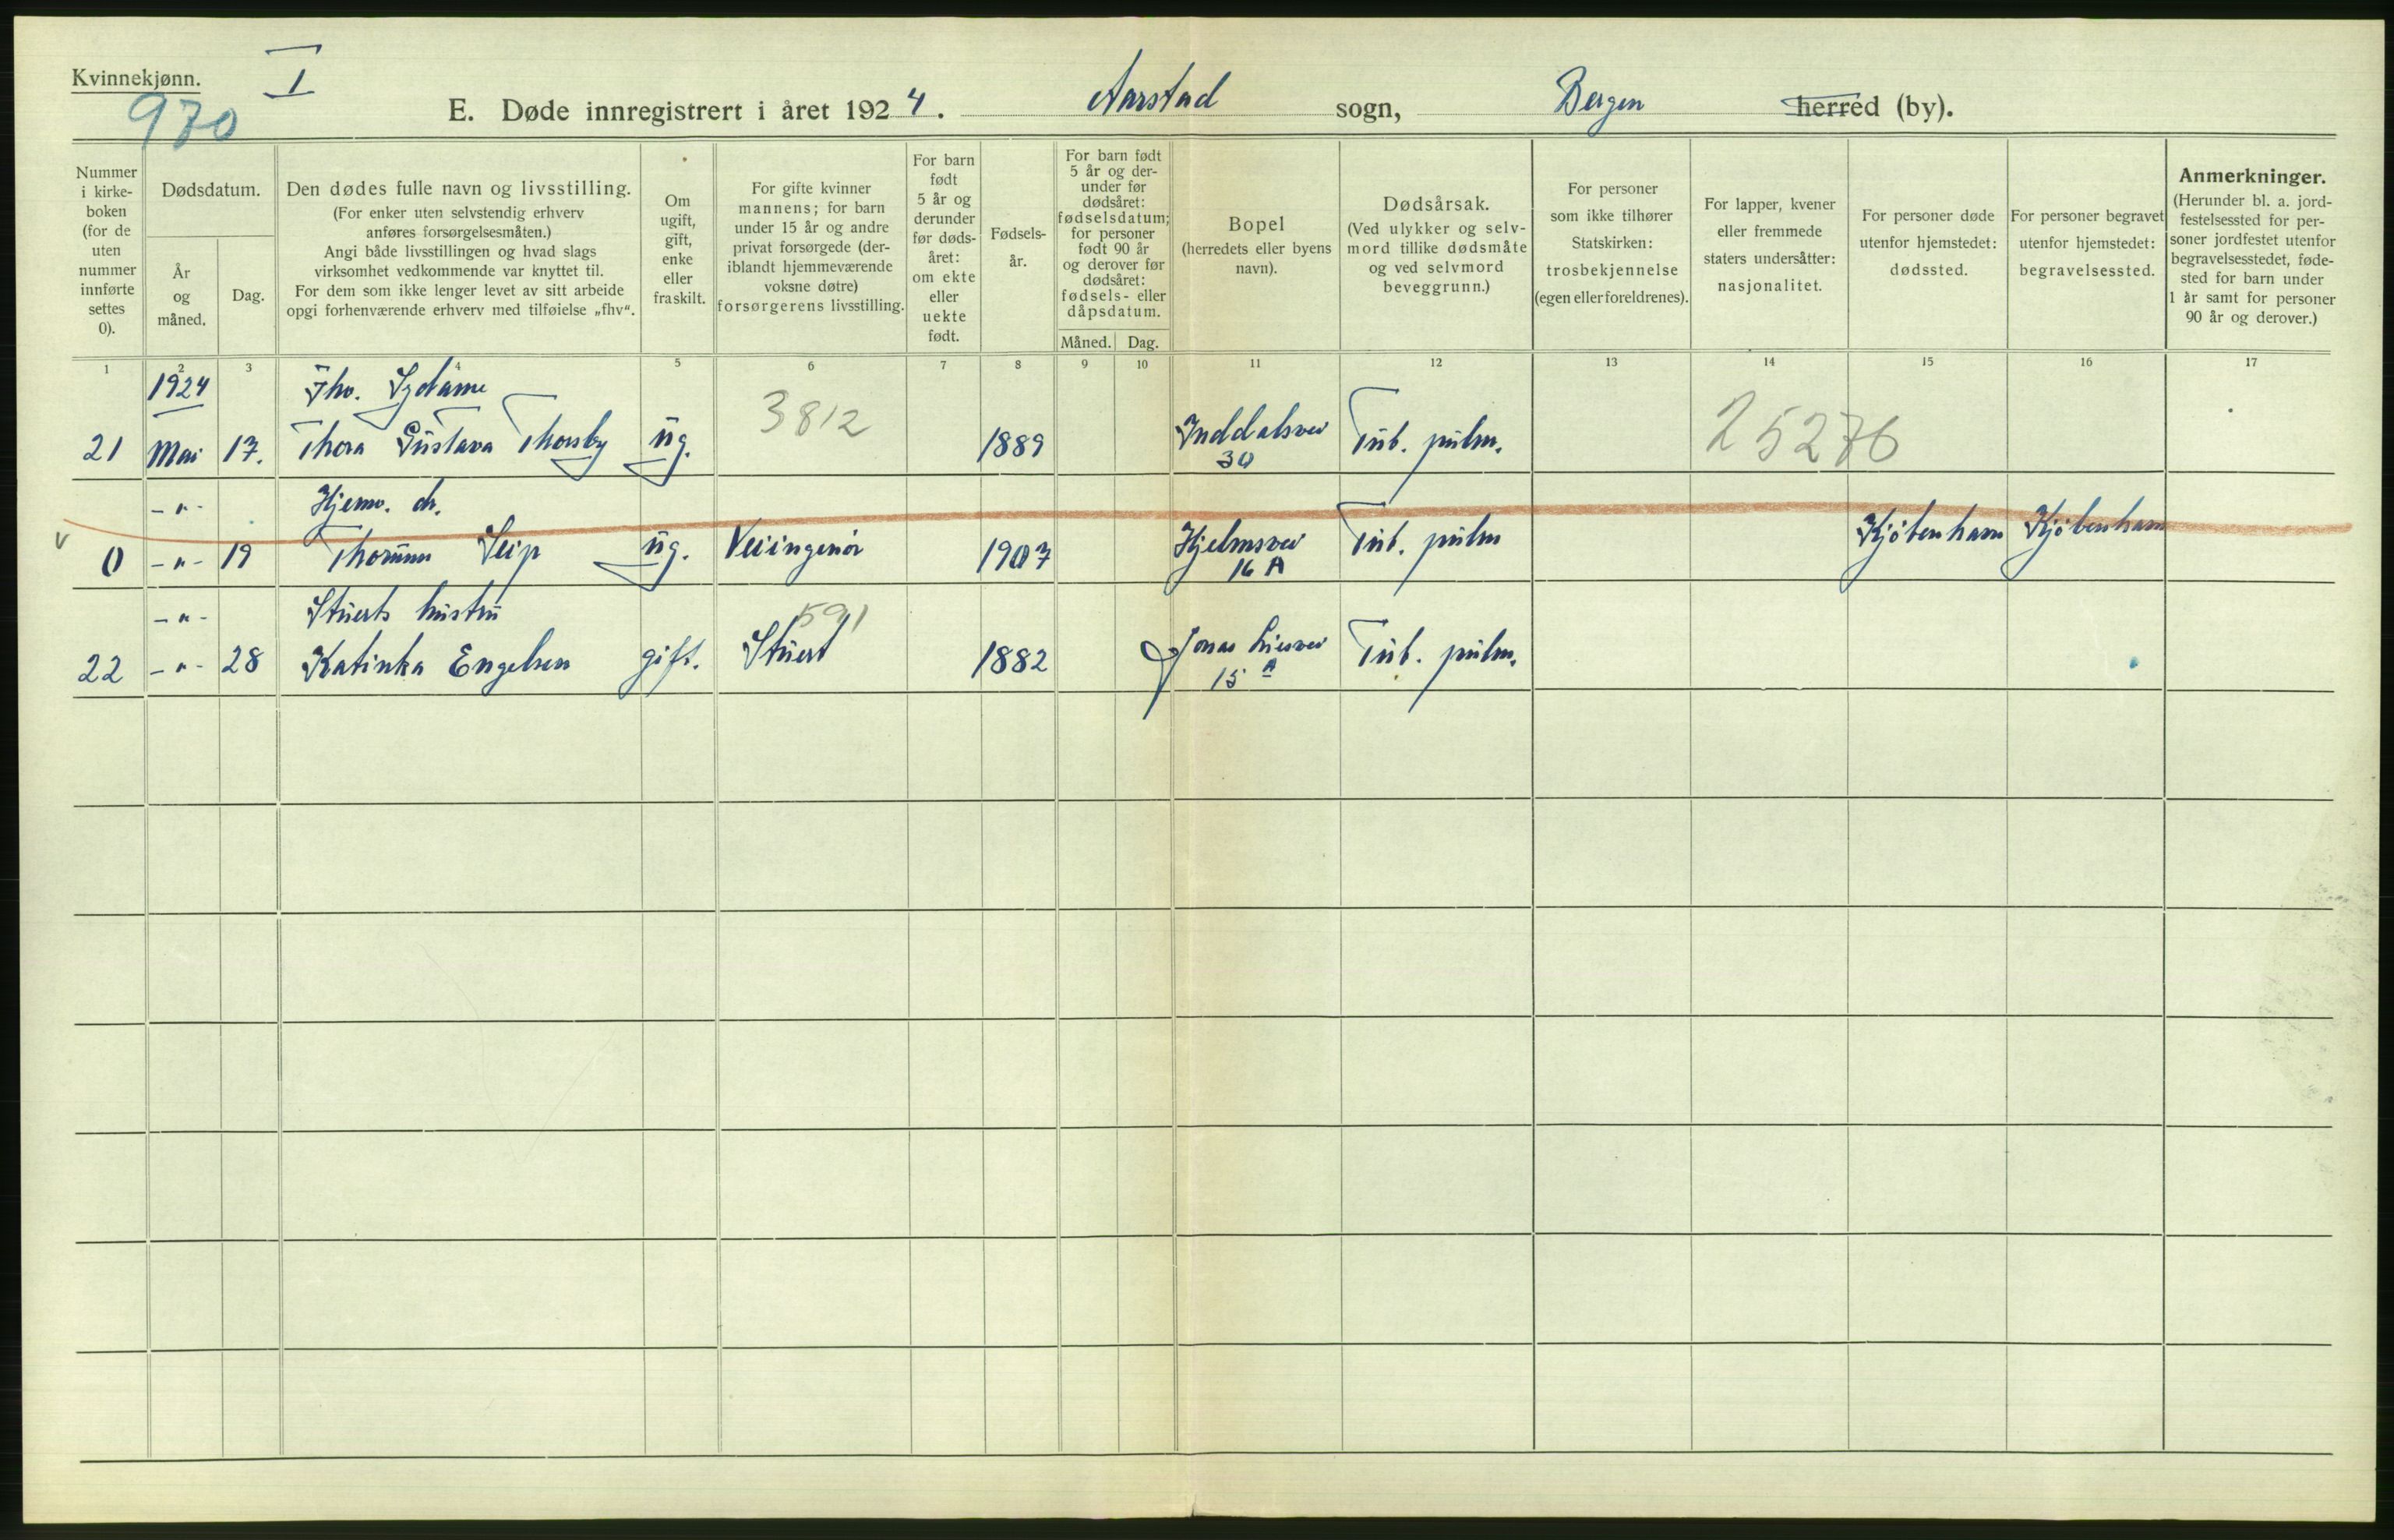 Kvinnekjønn.
I
970
E. Døde innregistrert i året 1924. Aarstad sogn, Bergen herred (by).
Nummer i kirke-boken (for de uten nummer innførte settes 0).
Dødsdatum.
År og måned.
Dag.
Den dødes fulle navn og livsstilling.
(For enker uten selvstendig erhverv
anføres forsørgelsesmåten.)
Angi både livsstillingen og hvad slags
virksomhet vedkommende var knyttet til.
For dem som ikke lenger levet av sitt arbeide
opgi forhenværende erhverv med tilføielse „fhv“.
Om ugift, gift, enke eller fraskilt.
For gifte kvinner
mannens; for barn
under 15 år og andre
privat forsørgede (der-
iblandt hjemmeværende
voksne døtre)
forsørgerens livsstilling.
For barn født 5 år og derunder før døds-året: om ekte eller uekte født.
Fødsels-år.
For barn født
5 år og der-
under før
dødsåret:
fødselsdatum;
for personer
født 90 år
og derover før
dødsåret:
fødsels- eller
dåpsdatum.
Måned. Dag.
Bopel
(herredets eller byens
navn).
Dødsårsak.
(Ved ulykker og selv-
mord tillike dødsmåte
og ved selvmord
beveggrunn.)
For personer
som ikke tilhører
Statskirken:
trosbekjennelse
(egen eller foreldrenes).
For lapper, kvener
eller fremmede
staters undersåtter:
nasjonalitet.
For personer døde
utenfor hjemstedet:
dødssted.
For personer begravet
utenfor hjemstedet:
begravelsessted.
Anmerkninger.
(Herunder bl. a. jord-
festelsessted for per-
soner jordfestet utenfor
begravelsesstedet, føde-
sted for barn under
1 år samt for personer
90 år og derover.)
1 2 3 4 5 6 7 8 9 10 11 12 13 14 15 16 17
1924 Fhv. Sydame 3812 25276
21 Mai 17. Thora Gustava Thorsby ug. 1889 Inddalsvei 30 Tub. pulm.
-"- Hjemv. dr.
0 -"- 19 Thorunn Seip ug. Veiingeniør 1907 Hjelmsvei 16 A Tub. pulm Kjøbenhavn Kjøbenhavn
-"- Stuerts hustru 591
22 -"- 28 Katinka Engelsen gift. Stuert 1882 Jonas Liesvei 15 A Tub. pulm.